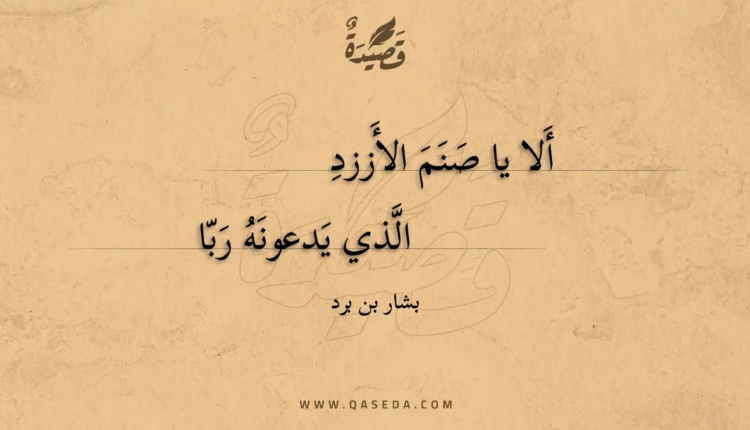 قَصِيدَةٌ
أَلا يا صَنَمَ الأَززدِ
الَّذي يَدعونَهُ رَبّا
بشار بن برد
WWW.QASEDA.COM